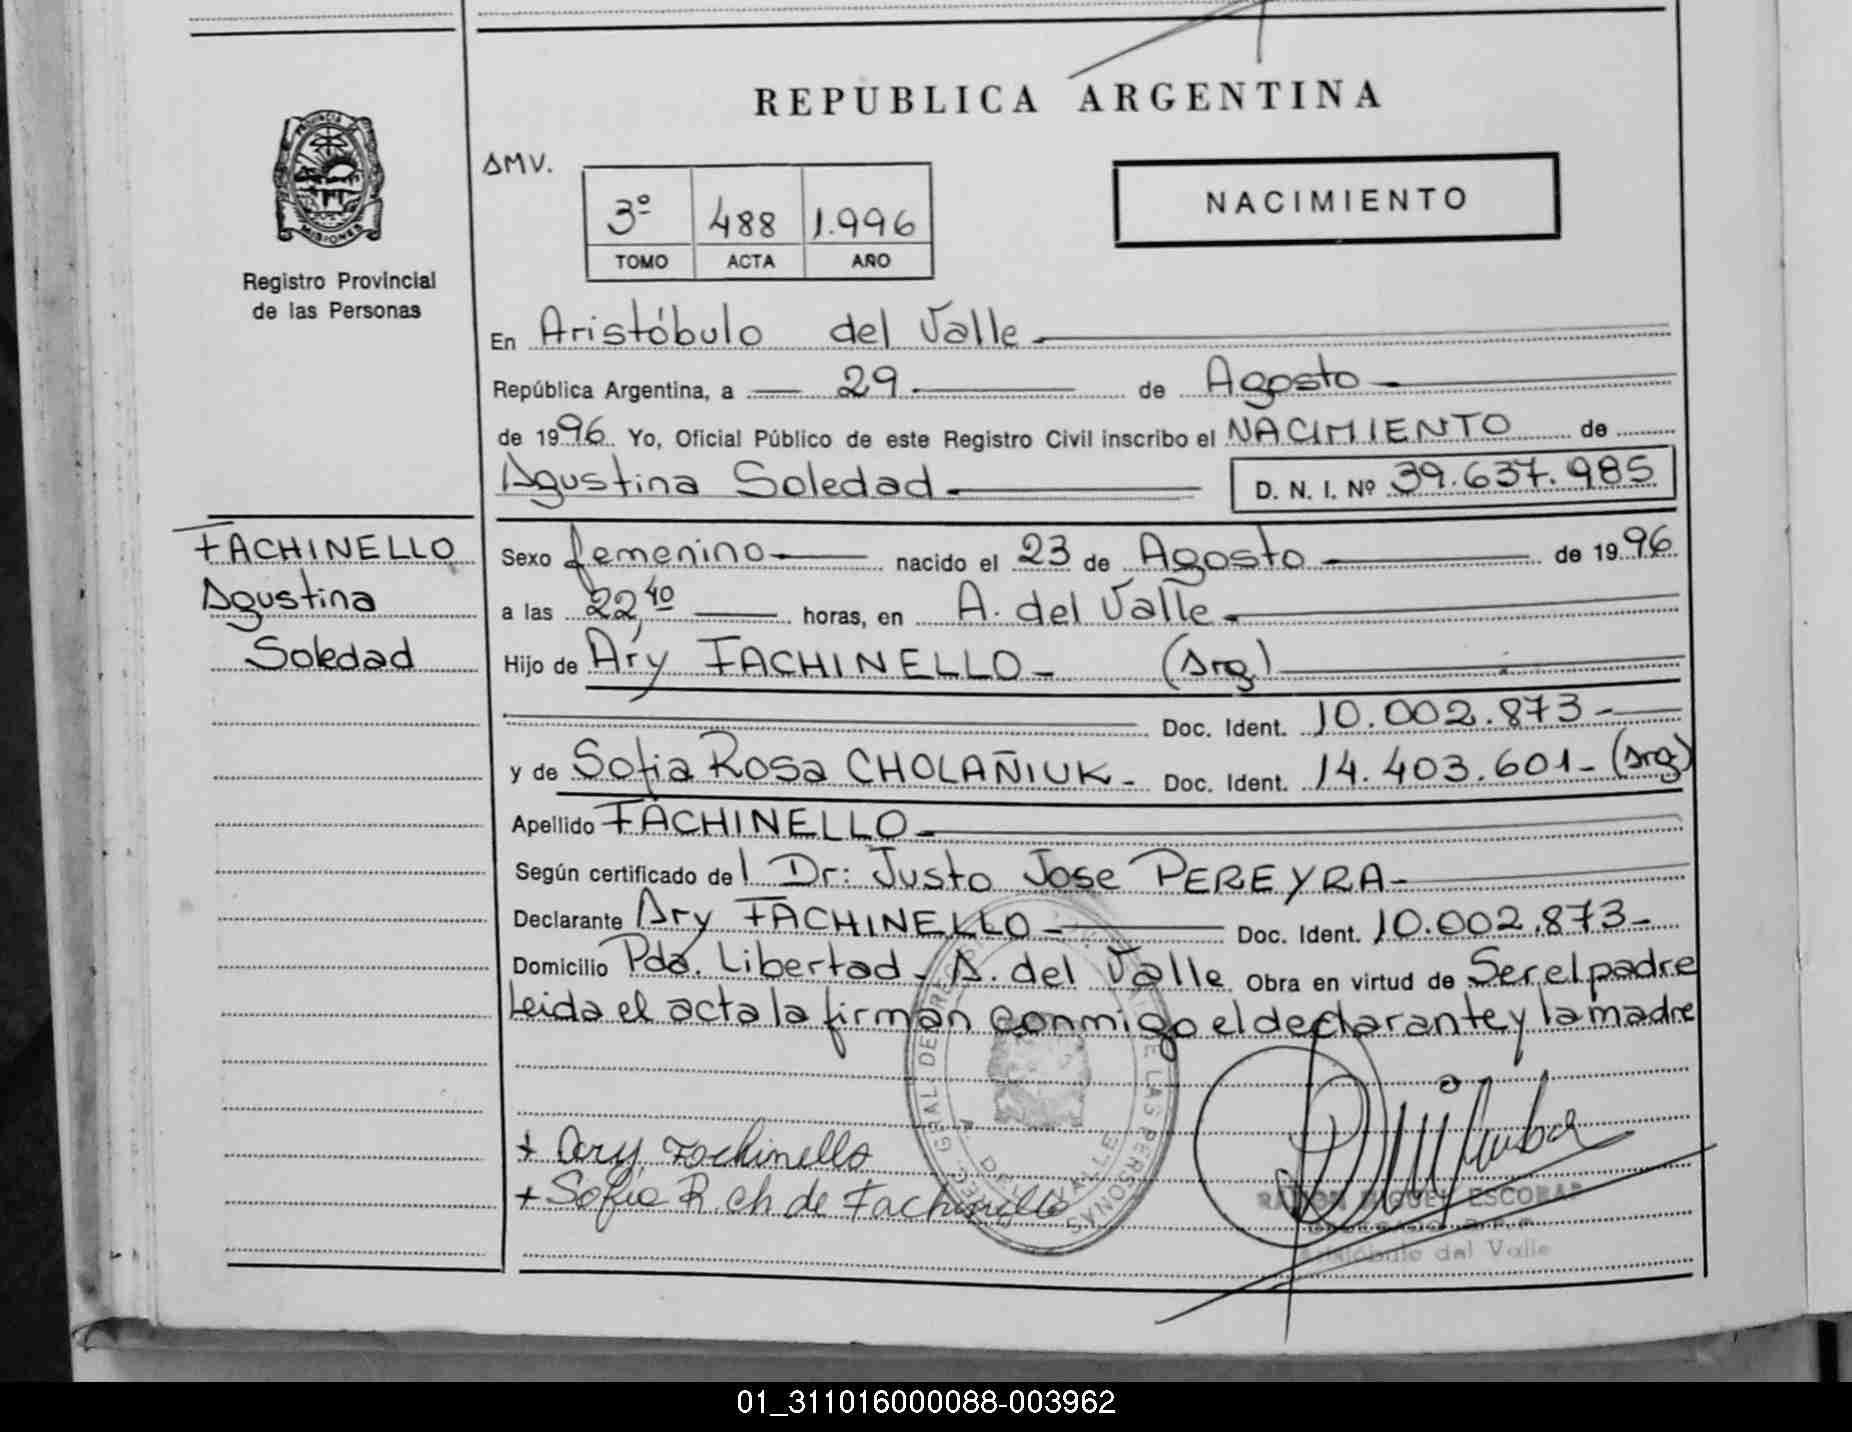 REPUBLICA ARGENTINA
PROVINCIA DE
MISIONES
Registro Provincial
de las Personas
AMV.
3º 488 1.996
TOMO ACTA AÑO
NACIMIENTO
En Aristóbulo del Valle
República Argentina, a 29 de Agosto
de 1996 Yo, Oficial Público de este Registro Civil inscribo el NACIMIENTO de
Agustina Soledad D. N. I. Nº 39.637.985
FACHINELLO
Agustina
Soledad
Sexo femenino nacido el 23 de Agosto de 1996
a las 22,40 horas, en A. del Valle
Hijo de Ary FACHINELLO (Arg)
Doc. Ident. 10.002.873
y de Sofia Rosa CHOLAÑIUK Doc. Ident. 14.403.601 (Arg)
Apellido FACHINELLO
Según certificado del Dr: Justo Jose PEREYRA
Declarante Ary FACHINELLO Doc. Ident. 10.002.873
Domicilio Pdo. Libertad - A. del Valle Obra en virtud de Ser el padre
Leida el acta la firman conmigo el declarante y la madre
+ Ary Fachinello
+ Sofia R. ch de Fachinello
DE LAS PERSONAS
A. DEL VALLE
RAMON MIGUEL ESCOBAR
Aristóbulo del Valle
01_311016000088-003962